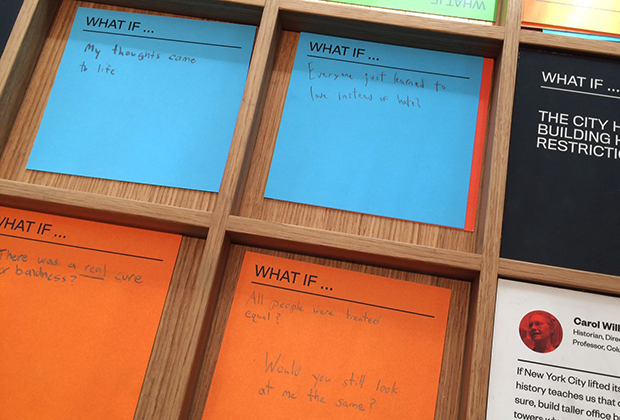 WHAT IF ...
My thoughts came
to life
WHAT IF ...
Everyone just learned to
love instead of hate?
WHAT IF ...
THE CITY H
BUILDING H
RESTRICTIO
WHAT IF
WHAT IF ...
There was a real cure
for baldness?
WHAT IF ...
All people were treated
equal?
Would you still look
at me the same?
Carol Will
Historian, Direc
Professor, Colu
If New York City lifted its
history teaches us that d
sure, build taller office b
towers wh